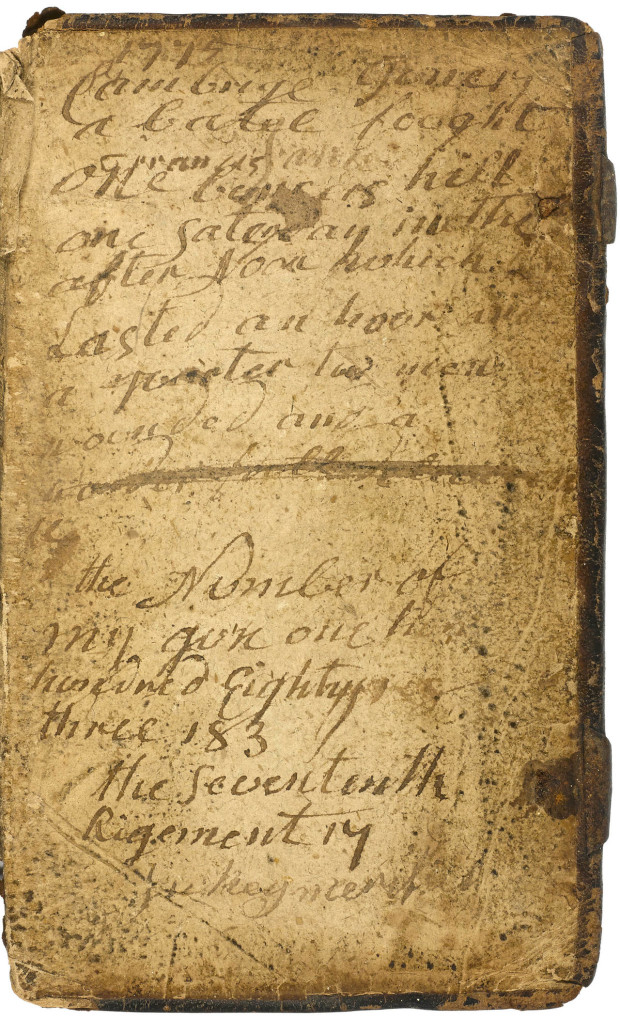 1775
Cambrige June 17
a batel fought
one bunkers hill
one Saterday in the
after Noon which
Lasted an hoor and
a quarter two men
wounded and a
the Number of
my gon one
hondred Eighty
three 183
the Sevententh
Rigement 17